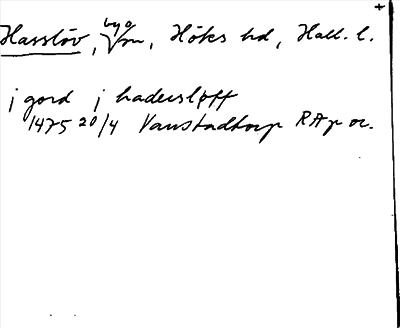 Hasslöv, by o sn, Höks hd, Hall. l.
j gord j haderslöff
1475 20/4 Vanstadtorp RAp or.